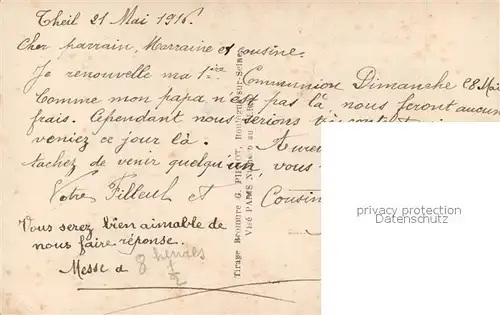 Theil 21 Mai 1916.
Cher parrain, Marraine et cousine.
Je renouvelle ma 1ière Communion Dimanche 28 Mai
Comme mon papa n'est pas là, nous feront aucun
frais. Cependant nous serions très
veniez ce jour là.
tachez de venir quelqu'un, vous
Votre Filleul et Cousin
Vous serez bien aimable de
nous faire réponse.
Messe à 8 heures 1/2
Tirage Bromure G.
Visé PARIS
privacy protection
Datenschutz
www.oldthing.de